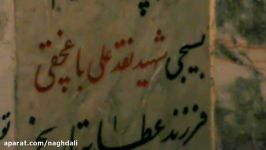 بسیجی شهید نقد علی باغچقی
فرزند عطا
aparat.com/naghdali